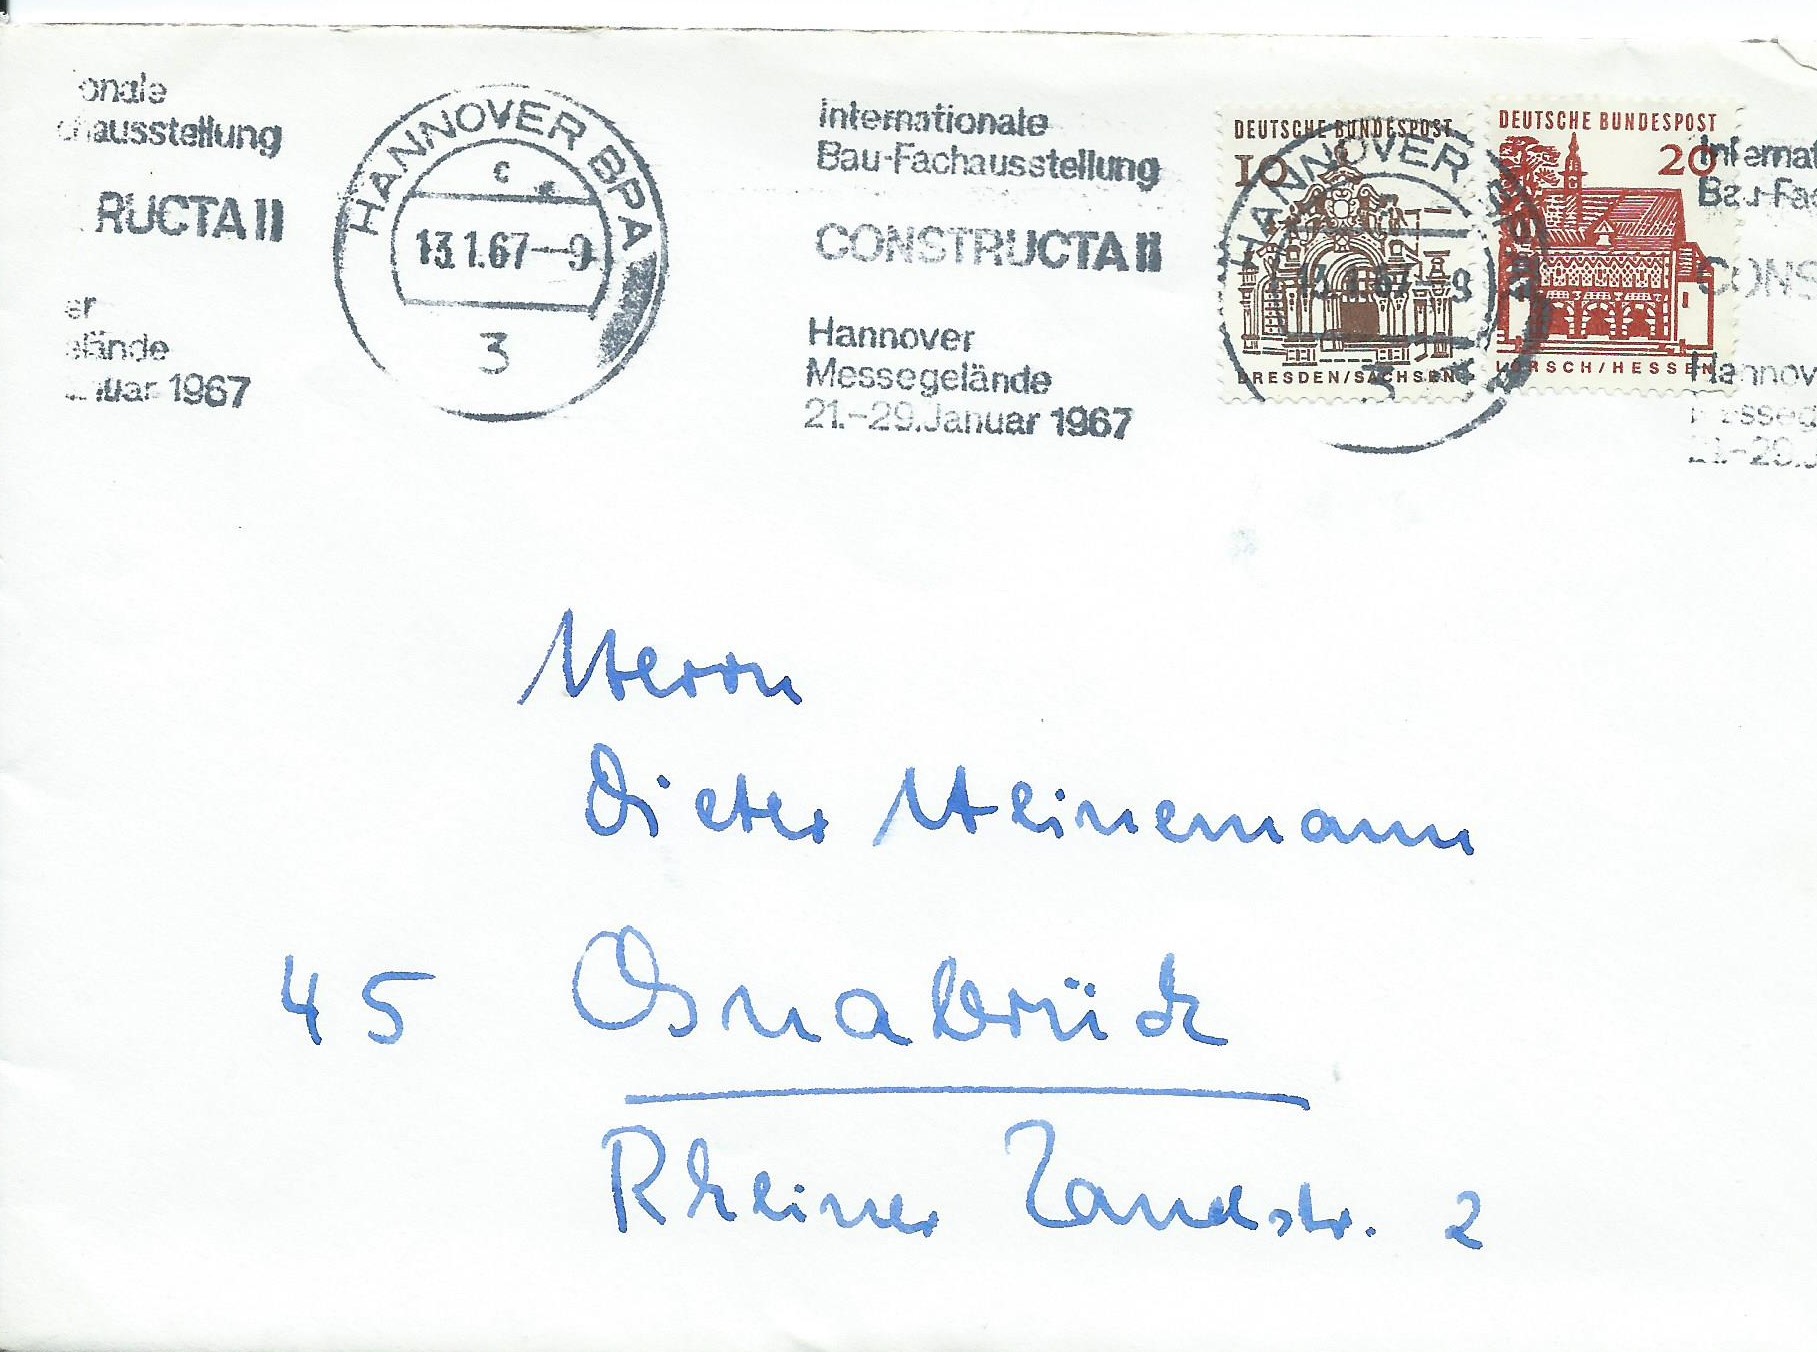 onale
chausstellung
RUCTA II
er
elände
nuar 1967
HANNOVER BPA
c
13.1.67--9
3
Internationale
Bau-Fachausstellung
CONSTRUCTA II
Hannover
Messegelände
21.-29. Januar 1967
DEUTSCHE BUNDESPOST
10
DRESDEN/SACHSEN
HANNOVER BPA
13.1.67--9
3
DEUTSCHE BUNDESPOST
20
LORSCH/HESSEN
Internat
Bau-Fac
CONS
Hannov
Messeg
21.-29.J
Herrn
Dieter Heinemann
45 Osnabrück
Rheiner Landstr. 2